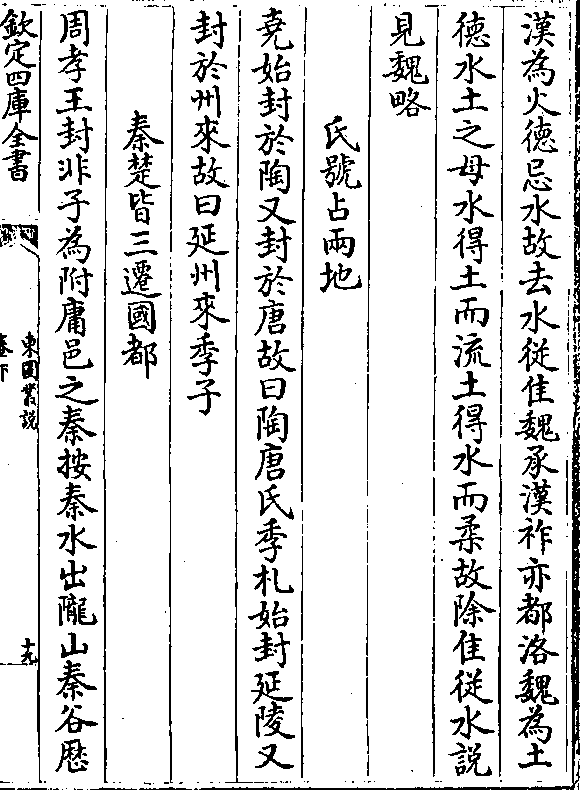 漢為火德忌水故去水從隹魏承漢祚亦都洛魏為土
德水土之母水得土而流土得水而柔故除隹從水説
見魏略
氏號占兩地
堯始封於陶又封於唐故曰陶唐氏季札始封延陵又
封於州來故曰延州來季子
秦楚皆三遷國都
周孝王封非子為附庸邑之秦按秦水出隴山秦谷厯
欽定四庫全書
東園叢説
卷下
十九